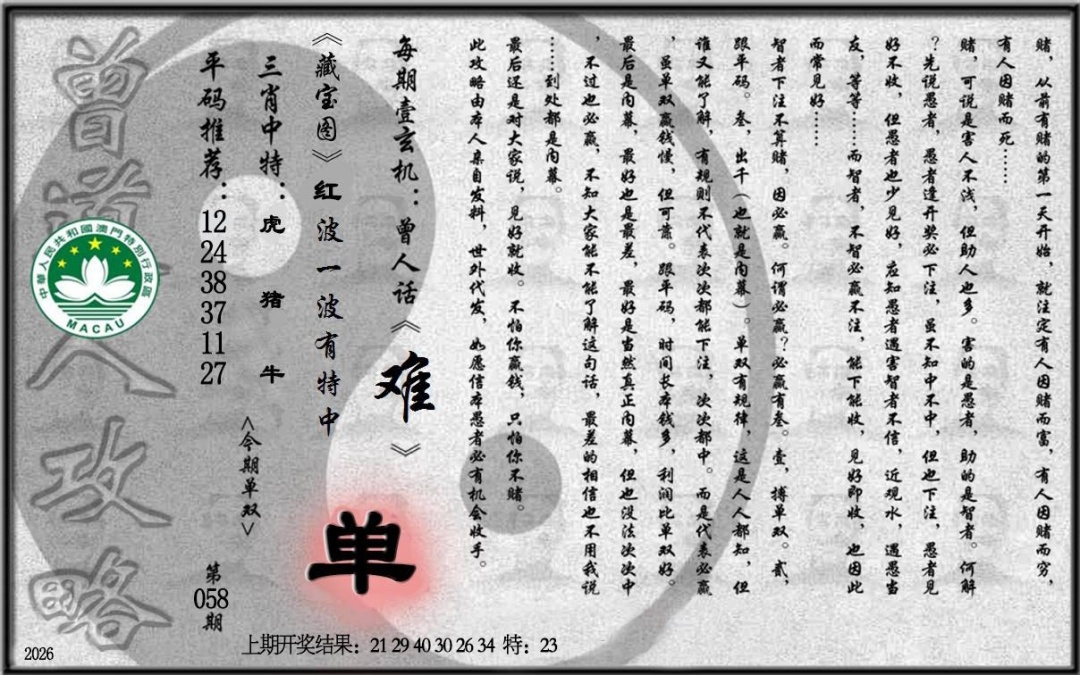 赌，从前有赌的第一天开始，就注定有人因赌而富，有人因赌而穷，
有人因赌而死……
赌，可说是害人不浅，但助人也多。害的是愚者，助的是智者。何解
？先说愚者，愚者逢开奖必下注，虽不知中不中，但也下注，愚者见
好不收，但愚者也少见好，应知愚者遇害智者不信，近观水，遇愚当
友，等等……而智者，不智必赢不注，能下能收，见好即收，也因此
而常见好……
智者下注不算赌，因必赢。何谓必赢？必赢有叁。壹，搏单双。贰，
跟单码。叁，出千（也就是内幕）。单双有规律，这是人人都知，但
谁又能了解，有规则不代表次次都能下注，次次都中。而是代表必赢
，虽单双赢钱慢，但可靠。跟单码，时间长本钱多，利润比单双好。
最后是内幕，最好也是最差，最好是当然真正内幕，但也没法次次中
，不过也必赢，不知大家能不能了解这句话，最差的相信也不用我说
……到处都是内幕。
最后还是对大家说，见好就收。不怕你赢钱，只怕你不赌。
此攻略由本人亲自发料，世外代发，如愿信本愚者必有机会收手。
每期壹玄机：曾人话《难》
《藏宝图》红波一波有特中
单
三肖中特：虎 猪 牛
<今期单双>
平码推荐：12 24 38 37 11 27
第058期
曾道人攻略
中華人民共和國澳門特別行政區
MACAU
上期开奖结果：21 29 40 30 26 34 特：23
2026